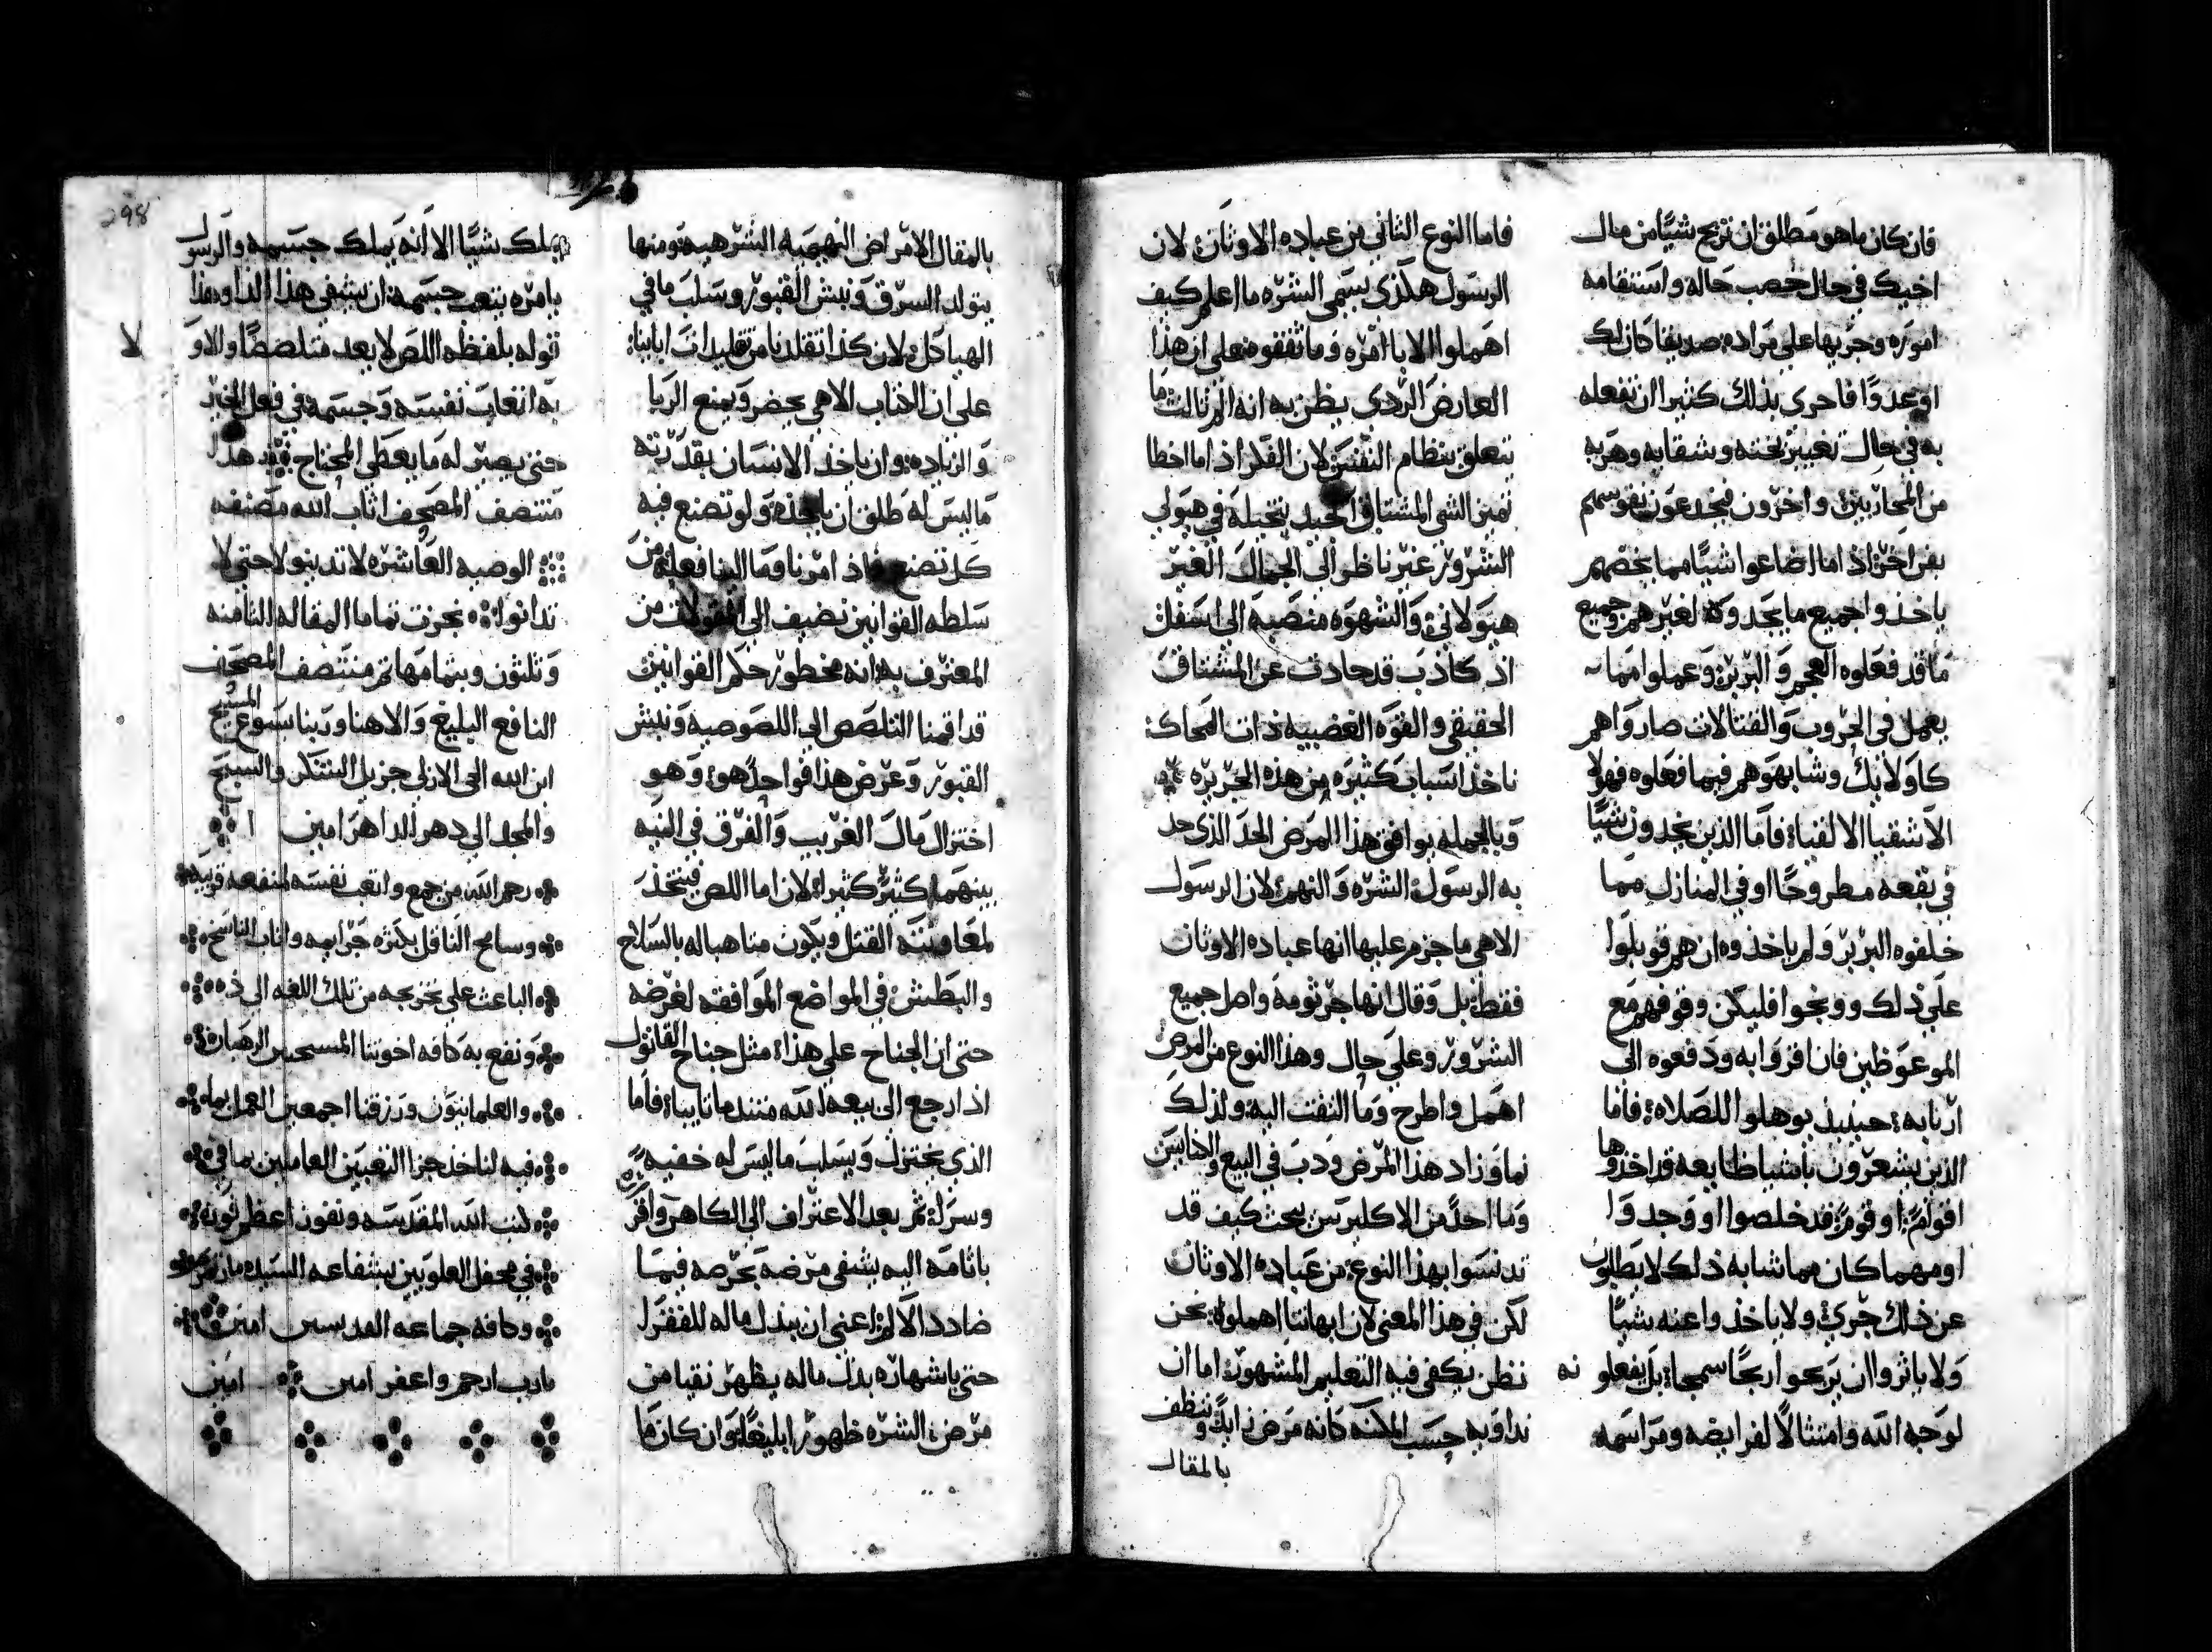 فان كان ما هو مطلق ان تربح شيًا من مال
اخيك في حال خصب حاله واستقامه
اموره وجريها على مراده صديقا كان لك
او عدوًا فاحرى بذلك كثيرا ان تفعله
به في حال تغيير بخته وشقايه وهربه
من المحاربين واخرون فبخدعون نفوسهم
بفن اخر اذ اما اضاعوا شيًا مما يخصهم
ياخذوا جميع ما يجدوه لغيرهم جميع
ما قد فعلوه العجم والبربر وعملوا مما
يعمل في الحروب والقتالات صاروا هم
كاوليك وشابهوهم فيما فعلوه فهولا
الاشقيا الالفيا فاما الذين يجدون شيًا
في بقعه مطروحًا او في المنازل مما
خلفوه البربر ولم ياخذوه ان هم قوبلوا
على ذلك ووبخوا فليكن وقوفهم مع
الموعوظين فان اقروا به ودفعوه الى
اربابه حينيذ يوهلوا للصلاه فاما
الذين يشعرون باشيا ضايعه قد اخذوها
اقوام او قوم قد خلصوا او وجدوا
او مهما كان مما شابه ذلك لا يطلبون
عن ذلك جزي ولا ياخذوا عنه شيًا
ولا ياثروا ان يربحوا ربحًا سمجا بل يفعلونه
لوجه الله وامتثالًا لفرايضه ومراسمه
فاما النوع الثاني من عباده الاوثان لان
الرسول هكذى يسمى الشره ما اعلم كيف
اهملوا الابا امره وما ثقفوه على ان هذا
العارض الردي يظن به انه الم ثالث ما
يتعلق بنظام النفس لان الفكر اذ اما اخطا
تميز الشي المشتاق الحيد بتخيله في هيولي
الشرور غير ناظر الى الجمال الغير
هيولاني والشهوه منصبه الى اسفل
اذ كاذب قد حادت عن المشتاق
الحقيقي والقوه الغضبيه ذات المحاك
ناخذ اسباب كثيره من هذه الجزيره
وبالجمله يوافق هذا المرض الحد الذي حد
به الرسول الشره والنهم لان الرسول
الاهي ما جزم عليها انها عباده الاوثان
فقط بل وقال انها جرثومه واصل جميع
الشرور وعلى حال وهذا النوع من المرض
اهمل واطرح وما التفت اليه ولذلك
نما وزاد هذا المرض ودب في البيع والكنايس
وما احدًا من الاكليرسين يبحث كيف قد
تدنسوا بهذا النوع من عباده الاوثان
لكن في هذا المعنى لان ابهاتنا اهملوه نحن
نظن يكفي فيه التعليم المشهور اما ان
نداويه حسب المكنه كانه مرض زايد وننظف
بالمقال
بالمقال الامراض البهيميه الشرهيه ومنها
يتولد السرق ونبش القبور وسلب ما في
الهياكل لان كذا تقلدنا من تقليدات ابايناء
على ان الكتاب الاهي يحضر ويمنع الربا
والزياده وان ياخذ الانسان بقدرته
ما ليس له طلق ان ياخذه ولو تصنع فيه
كل تصنع فاذ امرنا فما الينا فعله من
سلطه القوانين نضيف الى المقولات من
المعترف به انه محظور حكم القوانين
قد اقمنا التلصص الى اللصوصيه ونبش
القبور وعرض هذا فواحدًا هو وهو
اختزال مال الغريب والفرق في النيه
بينهما كثير كثيرا لان اما اللص فيتخذ
لمعاونته القتل ويكون متاهبا له بالسلاح
والبطش في المواضع الموافقه لغرضه
حتى ان الجناح على هذا مثل جناح القاتول
اذ ارجع الى بيعه الله متندما تايبا فاما
الذي يختزل ويسلب ما ليس له خفيه
وسرا ثم بعد الاعتراف الى الكاهن واقر
باثامه اليه يشفي مرضه بحرصه فيما
ضادد الالم اعني ان يبذل ماله للفقرا
حتى باشهاره بذل ماله يظهر نقيا من
مرض الشره ظهورًا بليغًا وان كان ما
298
يملك شيًا الا انه يملك جسمه والرسول
يامره بتعب جسمه ان يشفي هذا الدا وهذا
قوله بلفظه اللص لا يعد متلصصًا والاو
لا
به اتعاب نفسه وجسمه في فعل الخير
حتى يصير له ما يعطي المحتاج بعد هذا
منتصف المصحف اثاب الله مصنفه
الوصيه العاشره لا تدينوا لا حتى لا
تدانوا نجزت تماما المقاله الثامنه
وثلثون وبتمامها تم منتصف المصحف
النافع البليغ والاهنا وربنا يسوع المسيح
ابن الله الحي الازلي جزيل الشكر والسبح
والمجد الى دهر الداهر امين
رحم الله من جمع واتعب نفسه لمنفعه قريبه
وسامح الناقل بكثره جرايمه واثاب الناسخ
الباعث على تخريجه من تلك اللغه الى ذه
ونفع به كافه اخوتنا المسيحين الرهبان
والعلمانيون ورزقنا اجمعين العمل بما
فيه لناخذ جزا التعبين العاملين بما في
كتب الله المقدسه ونفوز اعظم ثوبه
في محفل العلويين بشفاعه السيده مارتمريم
وكافه جماعه القديسين امين
يارب ارحم واغفر امين امين